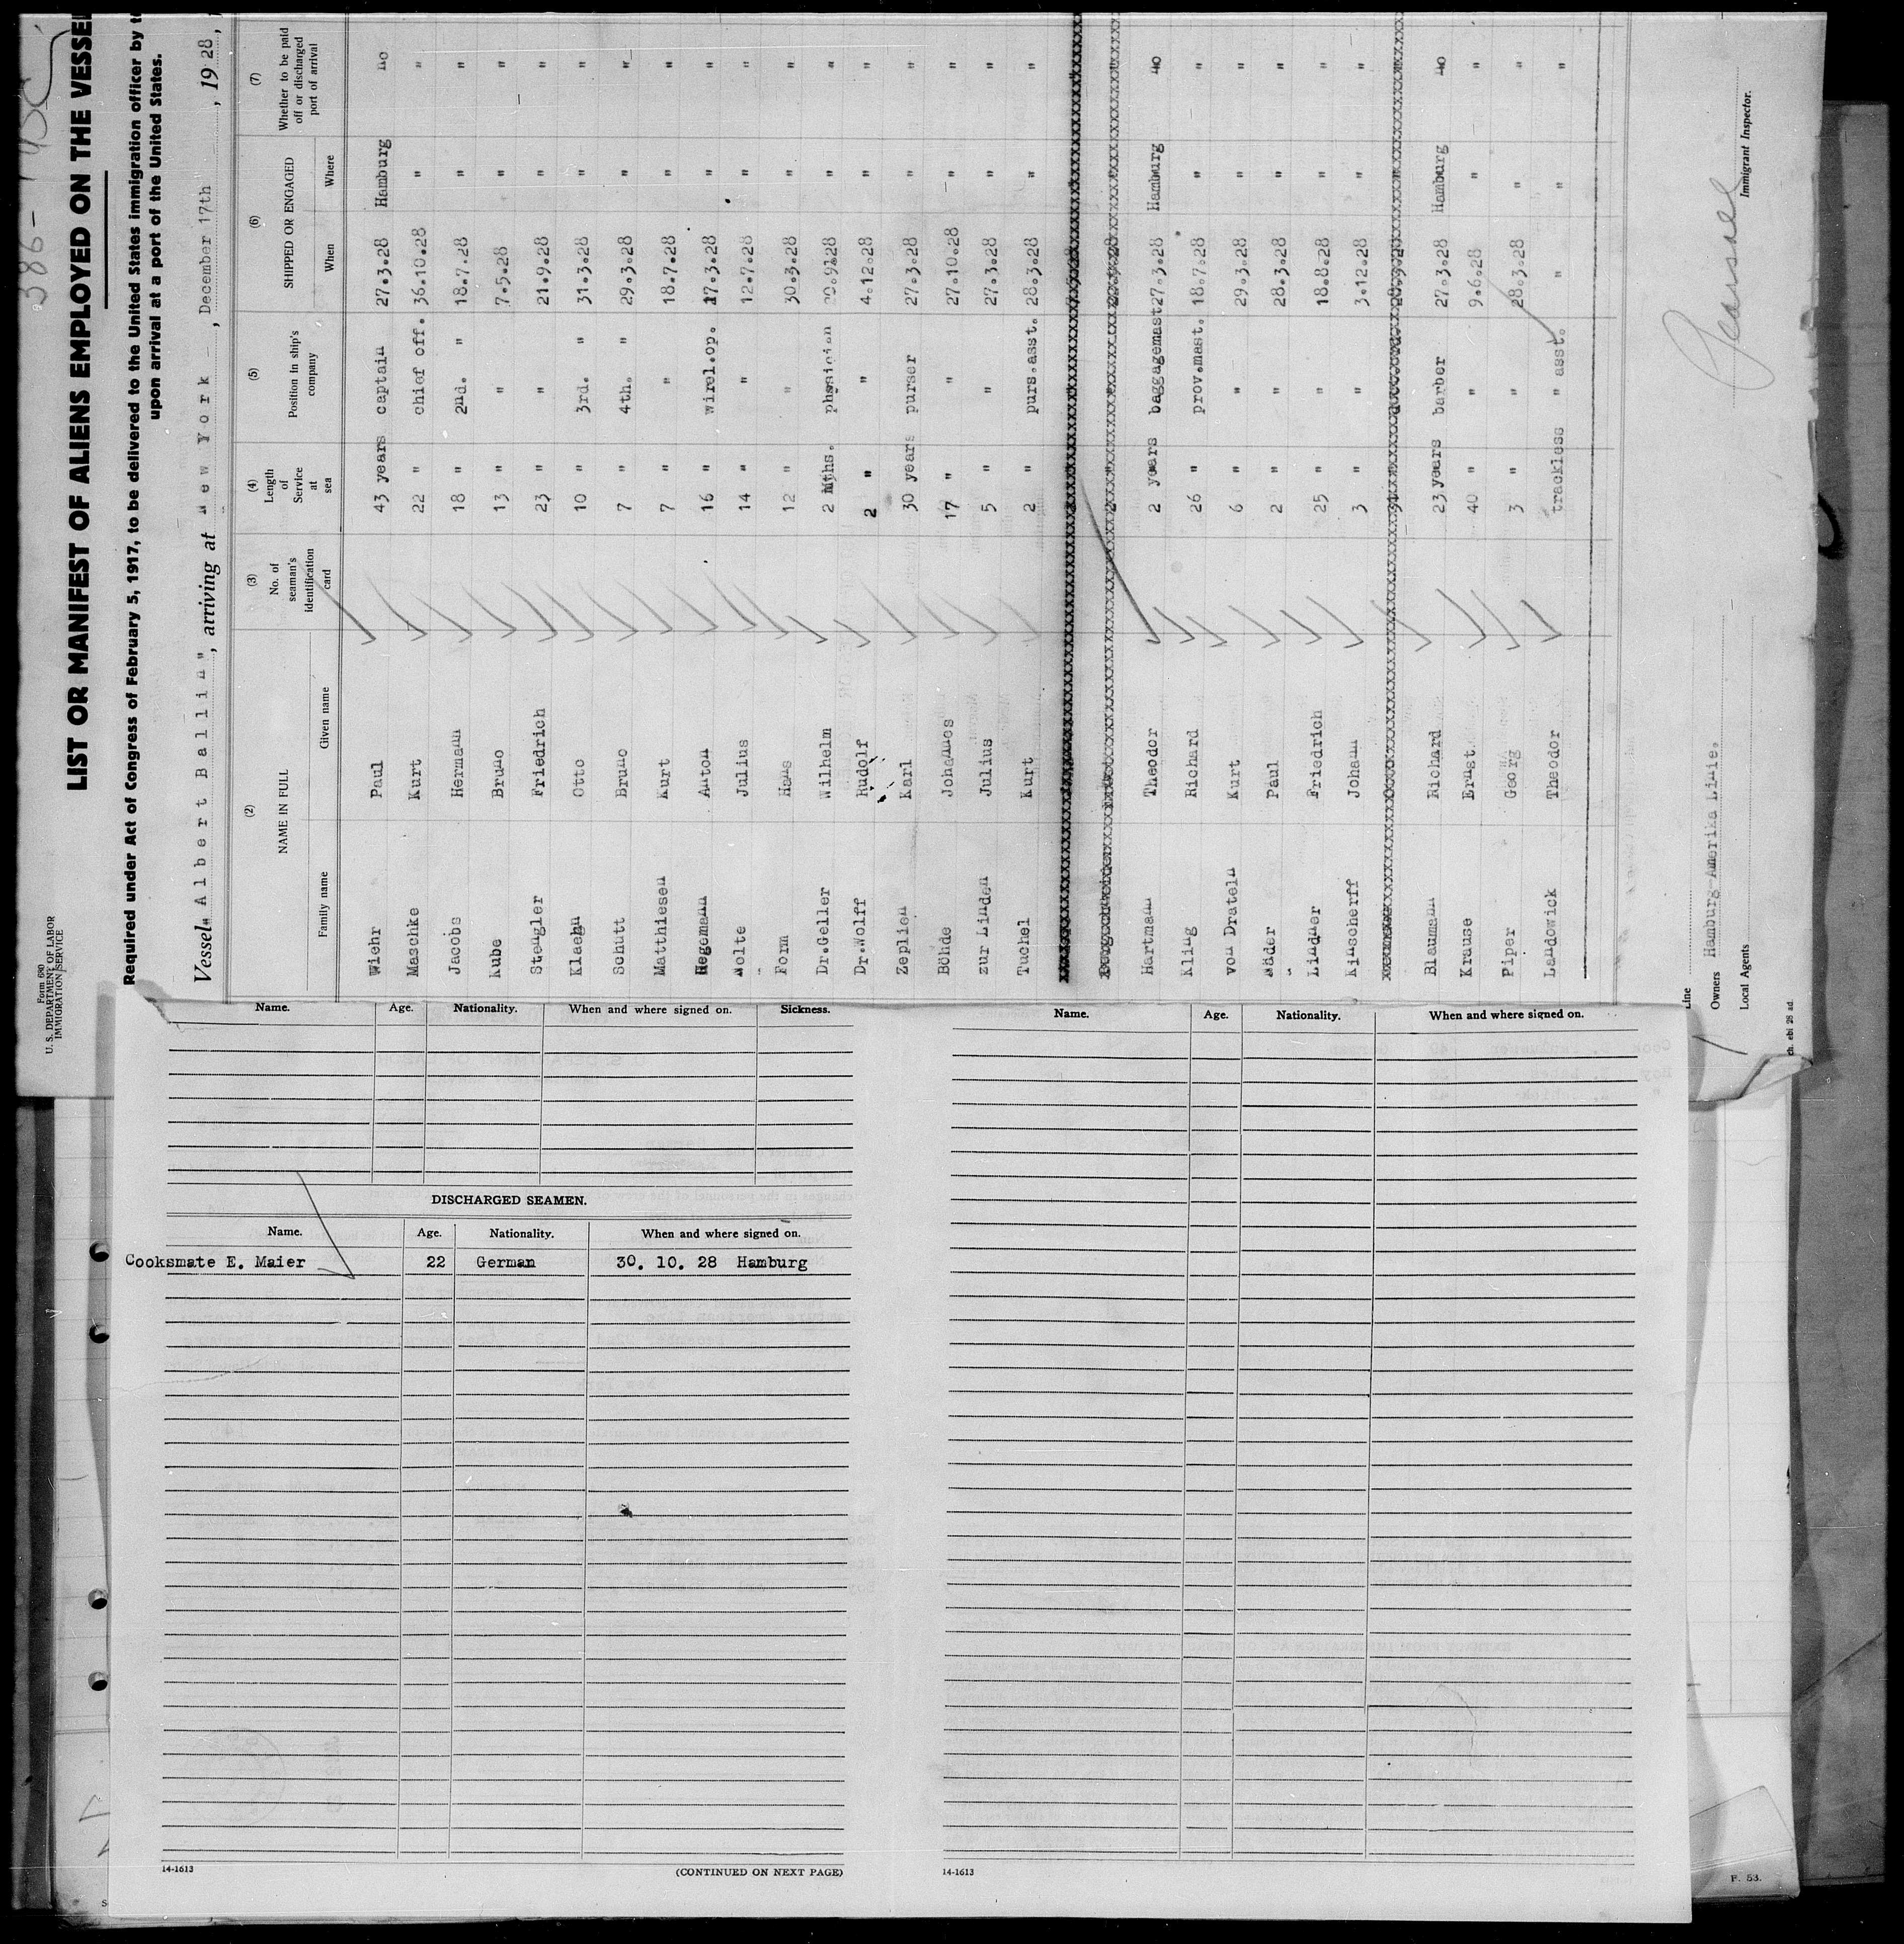 Form 680
U. S. DEPARTMENT OF LABOR
IMMIGRATION SERVICE
LIST OR MANIFEST OF ALIENS EMPLOYED ON THE VESSEL
Required under Act of Congress of February 5, 1917, to be delivered to the United States immigration officer by
upon arrival at a port of the United States.
Vessel "Albert Ballin", arriving at New York, December 17th, 1928,
(2) (3) (4) (5) (6) (7)
NAME IN FULL No. of seaman's identification card Length of Service at sea Position in ship's company SHIPPED OR ENGAGED Whether to be paid off or discharged port of arrival
Family name Given name When Where
Wiehr Paul 43 years captain 27.3.28 Hamburg no
Maschke Kurt 22 " chief off. 36.10.28 " "
Jacobs Hermann 18 " 2nd. " 18.7.28 " "
Kube Bruno 13 " " 7.5.28 " "
Stengler Friedrich 23 " " 21.9.28 " "
Klaehn Otto 10 " 3rd. " 31.3.28 " "
Schutt Bruno 7 " 4th. " 29.3.28 " "
Matthiesen Kurt 7 " " 18.7.28 " "
Hegemann Anton 16 " wirel.op. 27.3.28 " "
Nolte Julius 14 " " 12.7.28 " "
Form Hans 12 " " 30.3.28 " "
Dr.Geller Wilhelm 2 Mths. physician 20.9.28 " "
Dr.Wolff Rudolf 2 " " 4.12.28 " "
Zeplien Karl 30 years purser 27.3.28 " "
Böhde Johannes 17 " " 27.10.28 " "
zur Linden Julius 5 " " 27.3.28 " "
Tuchel Kurt 2 " purs.asst. 28.3.28 " "
Hartmann Theodor 2 years baggagemast 27.3.28 Hamburg no
Kling Richard 26 " prov.mast. 18.7.28 " "
von Drateln Kurt 6 " " 29.3.28 " "
Näder Paul 2 " " 28.3.28 " "
Lindner Friedrich 25 " " 18.8.28 " "
Kinscherff Johann 3 " " 3.12.28 " "
Blaumann Richard 23 years barber 27.3.28 Hamburg no
Krause Ernst 40 " " 9.6.28 " "
Piper Georg 3 " " 28.3.28 " "
Landowick Theodor trackless " asst. " " "
Line
Owners Hamburg Amerika Linie.
Local Agents
Immigrant Inspector.
Name. Age. Nationality. When and where signed on. Sickness.
DISCHARGED SEAMEN.
Name. Age. Nationality. When and where signed on.
Cooksmate E. Maier 22 German 30. 10. 28 Hamburg
14-1613 (CONTINUED ON NEXT PAGE)
Name. Age. Nationality. When and where signed on.
14-1613
F. 53.